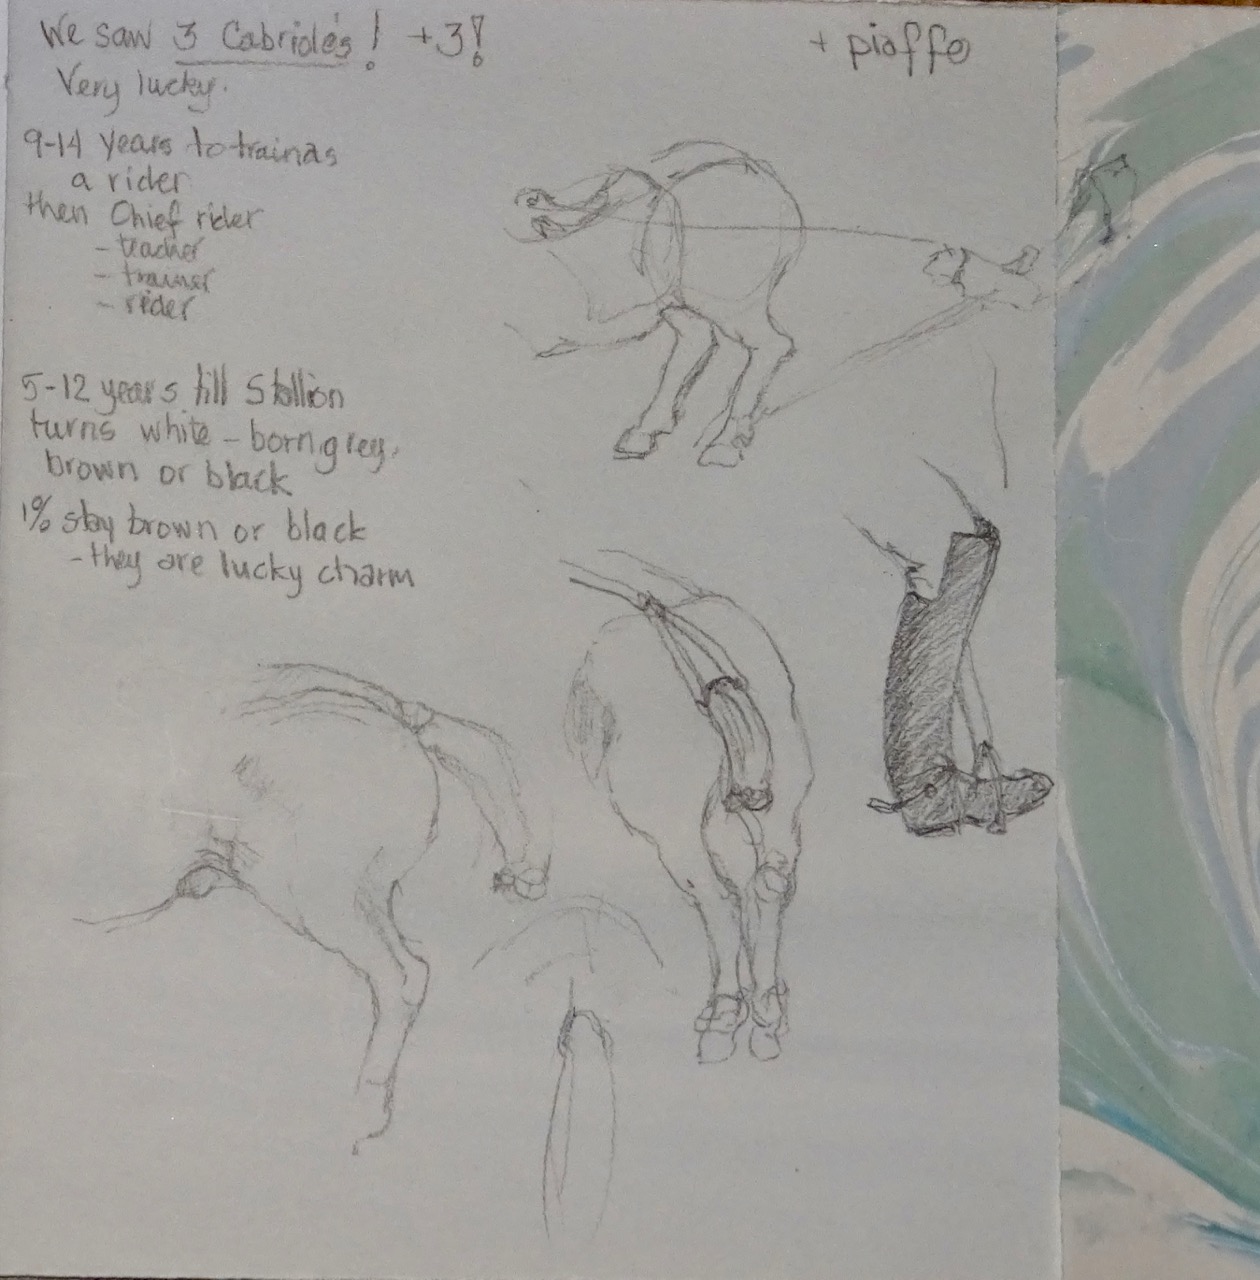 We saw 3 Cabriole's! +3!
+ piaffe
Very lucky.
9-14 years to train as
a rider
then Chief rider
- teacher
- trainer
- rider
5-12 years till Stallion
turns white - born grey,
brown or black
1% stay brown or black
- they are lucky charm